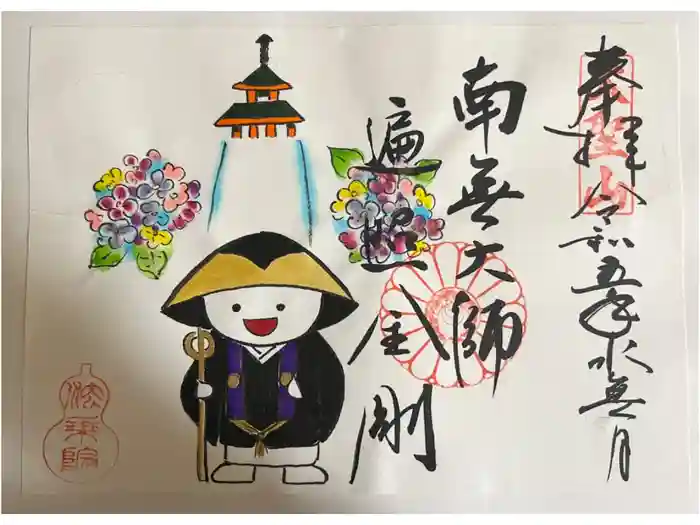 奉拝 令和五年水無月
南無大師
遍照金剛
法楽院